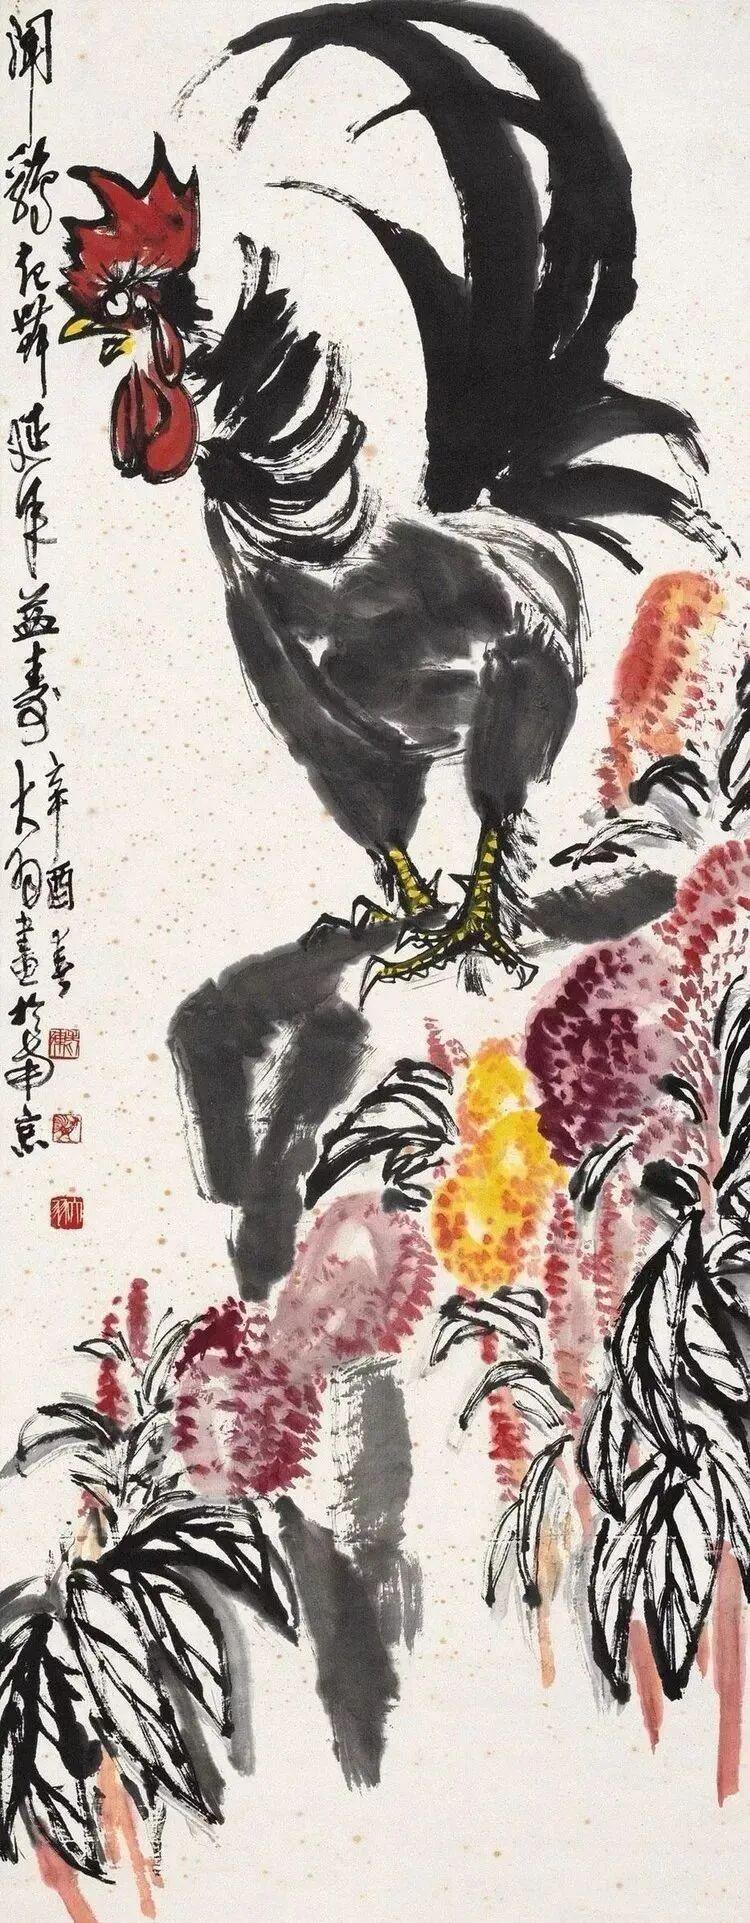 闻鸡起舞延年益寿
辛酉春
大羽画于南京
大羽